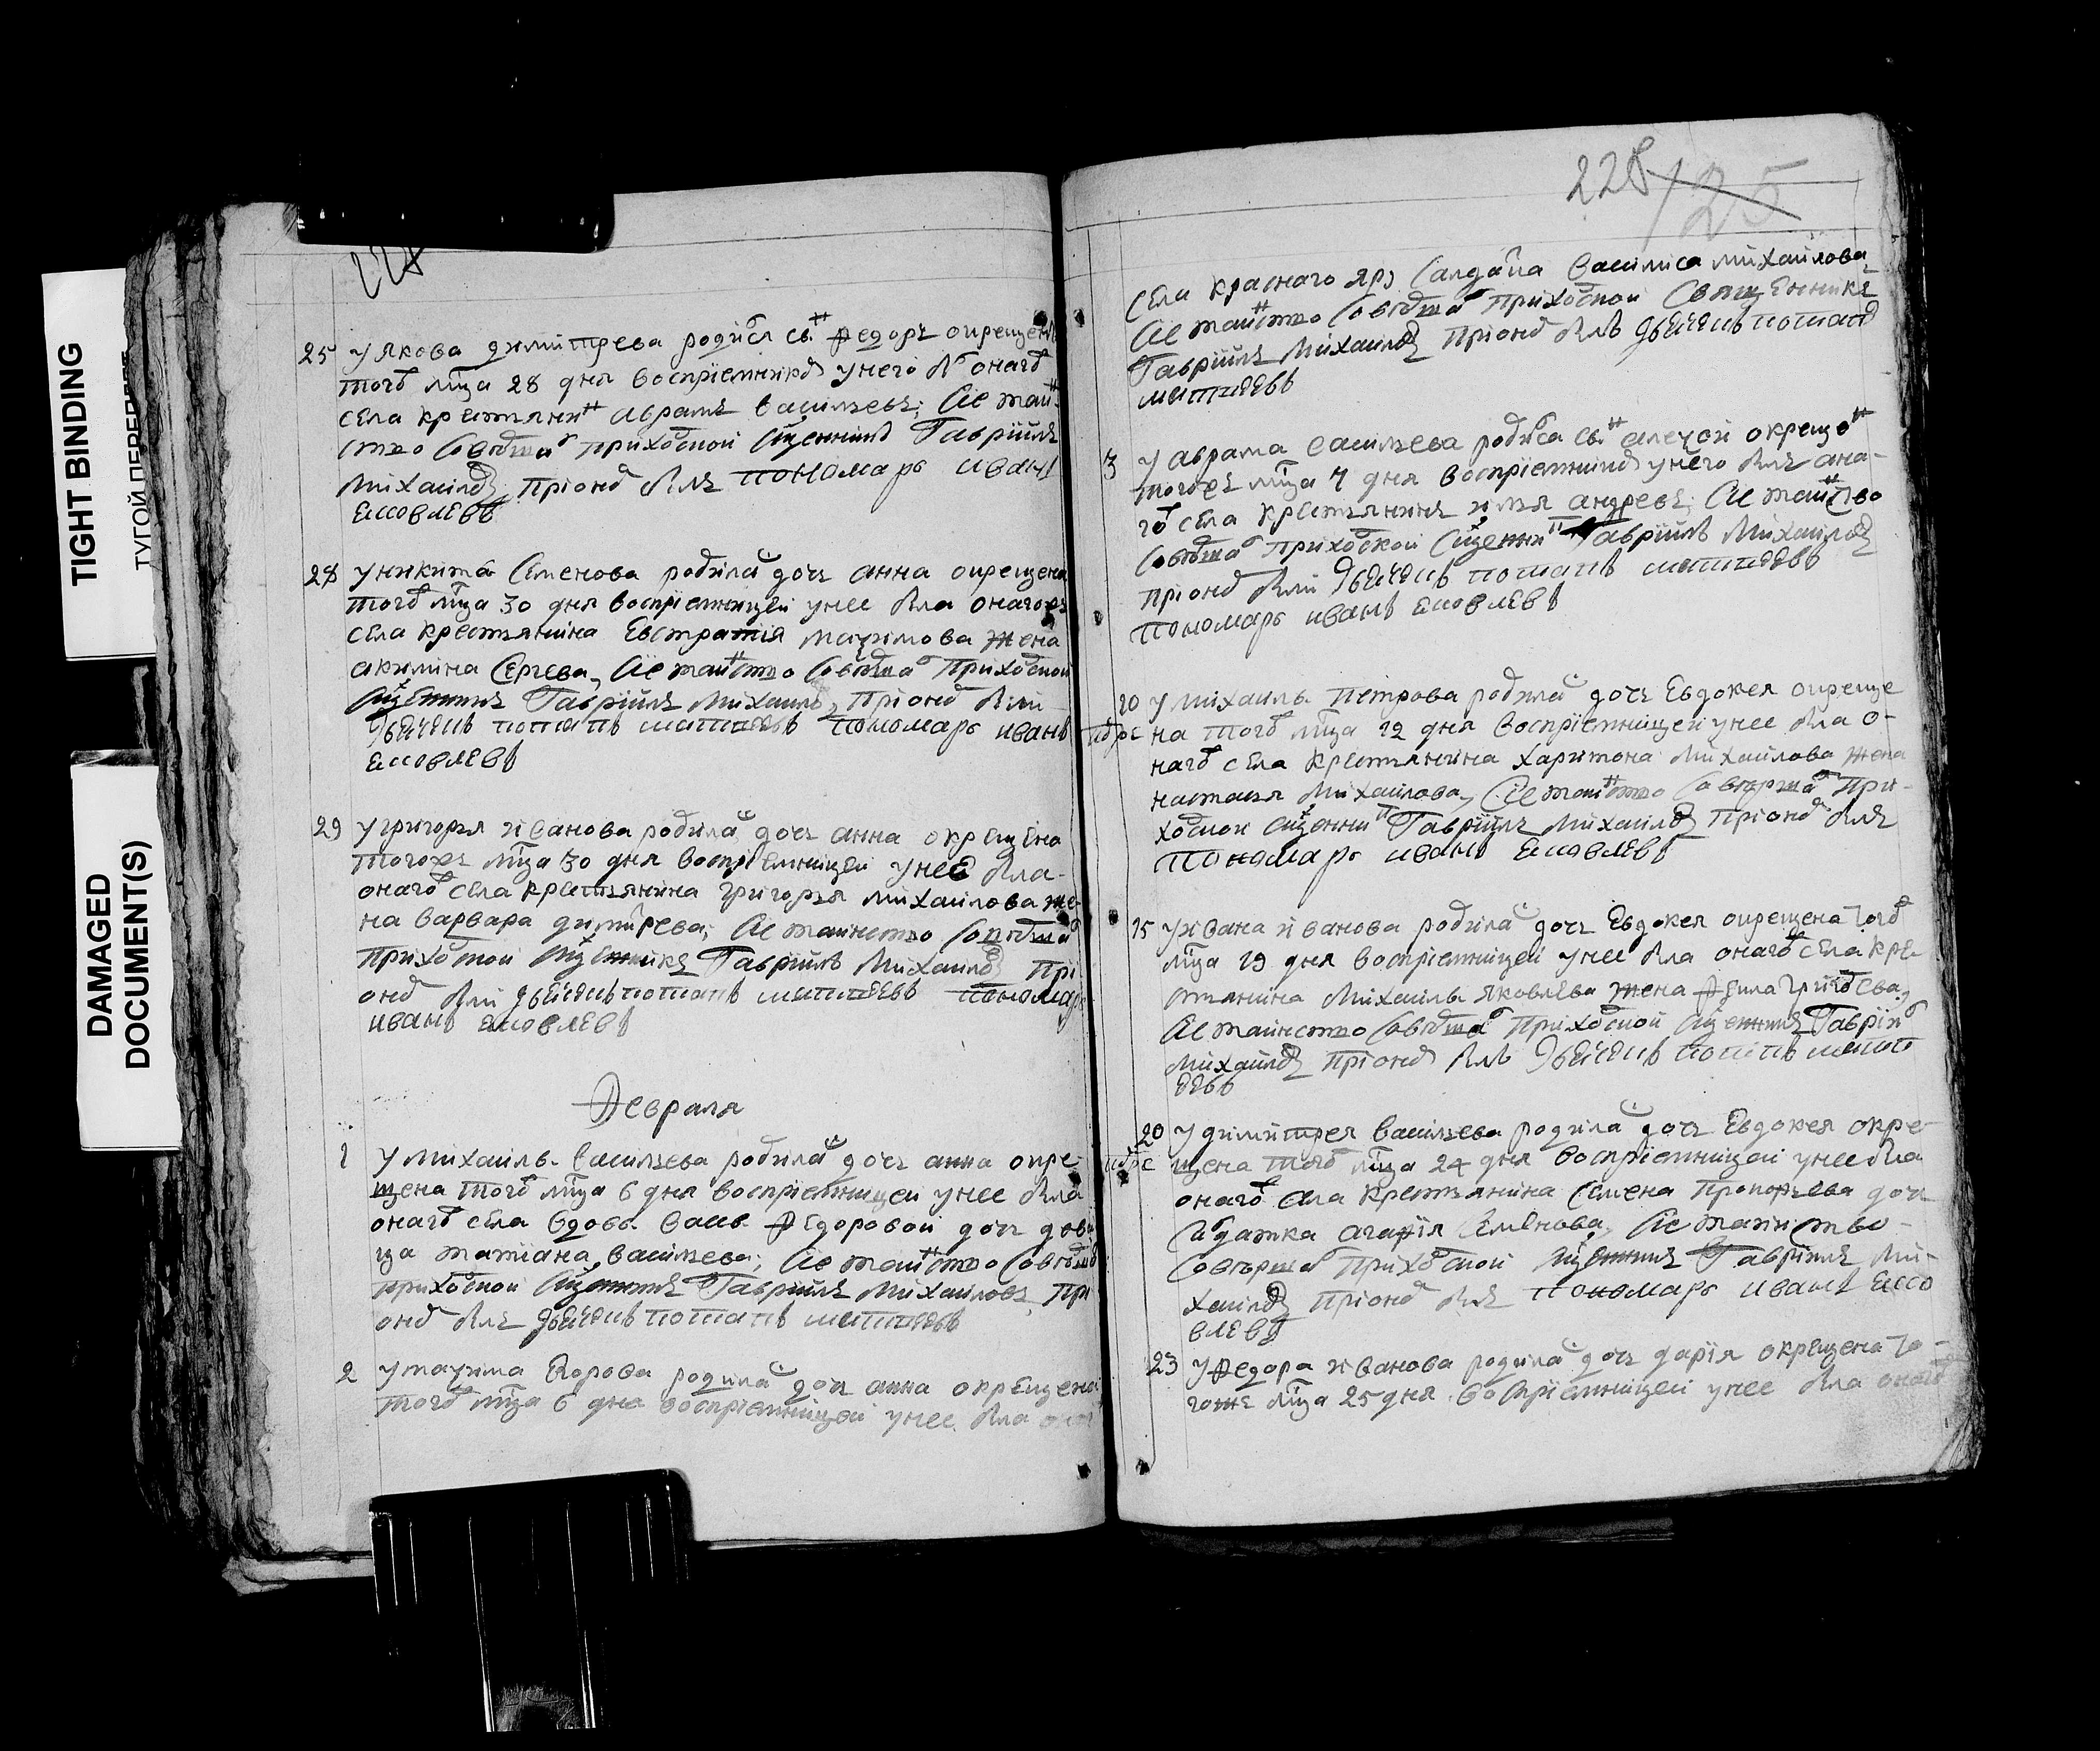 TIGHT BINDING
DAMAGED
DOCUMENT(S)
25 У якова димитрева родися снъ федоръ окрещенъ
тогѡ мца 28 дня воспріемникѡ у него бы онагѡ
села крестьянинъ аврамъ васильевъ; Сіе таин
ство совѣршалъ приходской сщенникъ Гавріилъ
Михаиловъ, при ономъ былъ пономарь иванъ
Яковлевъ
28 У никиты Семенова родилась дочь анна окрещена
тогѡ мца 30 дня воспріемницей у нее была онагожъ
села крестьянина Евстратія маѯимова жена
акилина Сергеева, Сіе таинство совѣршалъ приходской
сщенникъ Гавріилъ Михаиловъ, при ономъ были
дьячекъ потапъ матвѣевъ пономарь иванъ
Яковлевъ
29 У григорья иванова родилась дочь анна окрещена
тогожъ мца 30 дня воспріемницей у нее была
онагѡ села крестьянина григорья михаилова же
на варвара димитрева; Сіе таинство совѣршалъ
приходской сщенникъ Гавріилъ Михаиловъ при
ономъ были дьячекъ потапъ матвѣевъ пономарь
иванъ Яковлевъ
Февраля
1 У михаила васильева родилась дочь анна окре
щена тогѡ мца 6 дня воспріемницей у нее была
онагѡ села вдовы федоровой дочь деви
ца татіана васильева; Сіе таинство совѣршалъ
приходской сщенникъ Гавріилъ Михаиловъ, при
ономъ былъ дьячекъ потапъ матвѣевъ
2 У маѯима Егорова родилась дочь анна окрещена
тогѡ мца 6 дня воспріемницей у нее была онаг
228 125
села краснаго яру салдатка василиса михаилова
Сіе таинство совѣршалъ приходской Священникъ
Гавріилъ Михаиловъ при ономъ былъ дьячекъ потапъ
матвѣевъ
3 У аврама васильева родися снъ алеѯей окрещенъ
тогожъ мца 7 дня воспріемникѡ у него былъ она
гѡ села крестьянинъ илья андреевъ; Сіе таинство
совѣршалъ приходской сщенникъ Гавріилъ Михаиловъ
при ономъ были дьячекъ потапъ матвѣевъ
пономарь иванъ Яковлевъ
10 У михаила Петрова родилась дочь Евдокея окреще
на тогѡ мца 12 дня воспріемницей у нее была о
нагѡ села крестьянина харитона Михаилова жена
настасья Михаилова, Сіе таинство совершалъ при
ходской сщенникъ Гавріилъ Михаиловъ при ономъ былъ
пономарь иванъ Яковлевъ
15 У ивана иванова родилась дочь Евдокея окрещена тогѡ
мца 19 дня воспріемницей у нее была онагѡ села кре
стьянина Михаила яковлева жена Григорева,
Сіе таинство совѣршалъ приходской сщенникъ Гавріилъ
Михаиловъ при ономъ былъ дьячекъ потапъ матв
ѣевъ
20 У димитрея васильева родилась дочь Евдокея окре
щена тогѡ мца 24 дня воспріемницей у нее была
онагѡ села крестьянина Семена Прокофьева дочь
салдатка агафія Семенова, Сіе таинство
совершалъ приходской сщенникъ Гавріилъ Ми
хаиловъ при ономъ былъ пономарь иванъ Яко
влевъ
23 У федора иванова родилась дочь дарія окрещена то
гоже мца 25 дня воспріемницей у нее была онагѡ